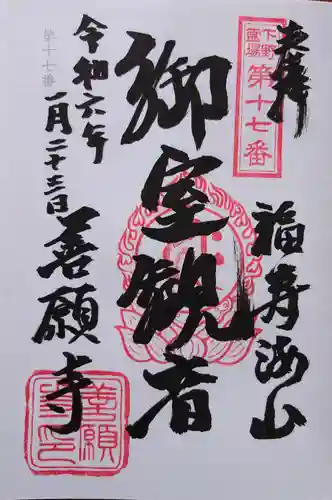 奉拝
下野
霊場
第十七番
福寿海山
御室観音
令和六年
一月二十三日
善願寺
第十七番
善願
寺印